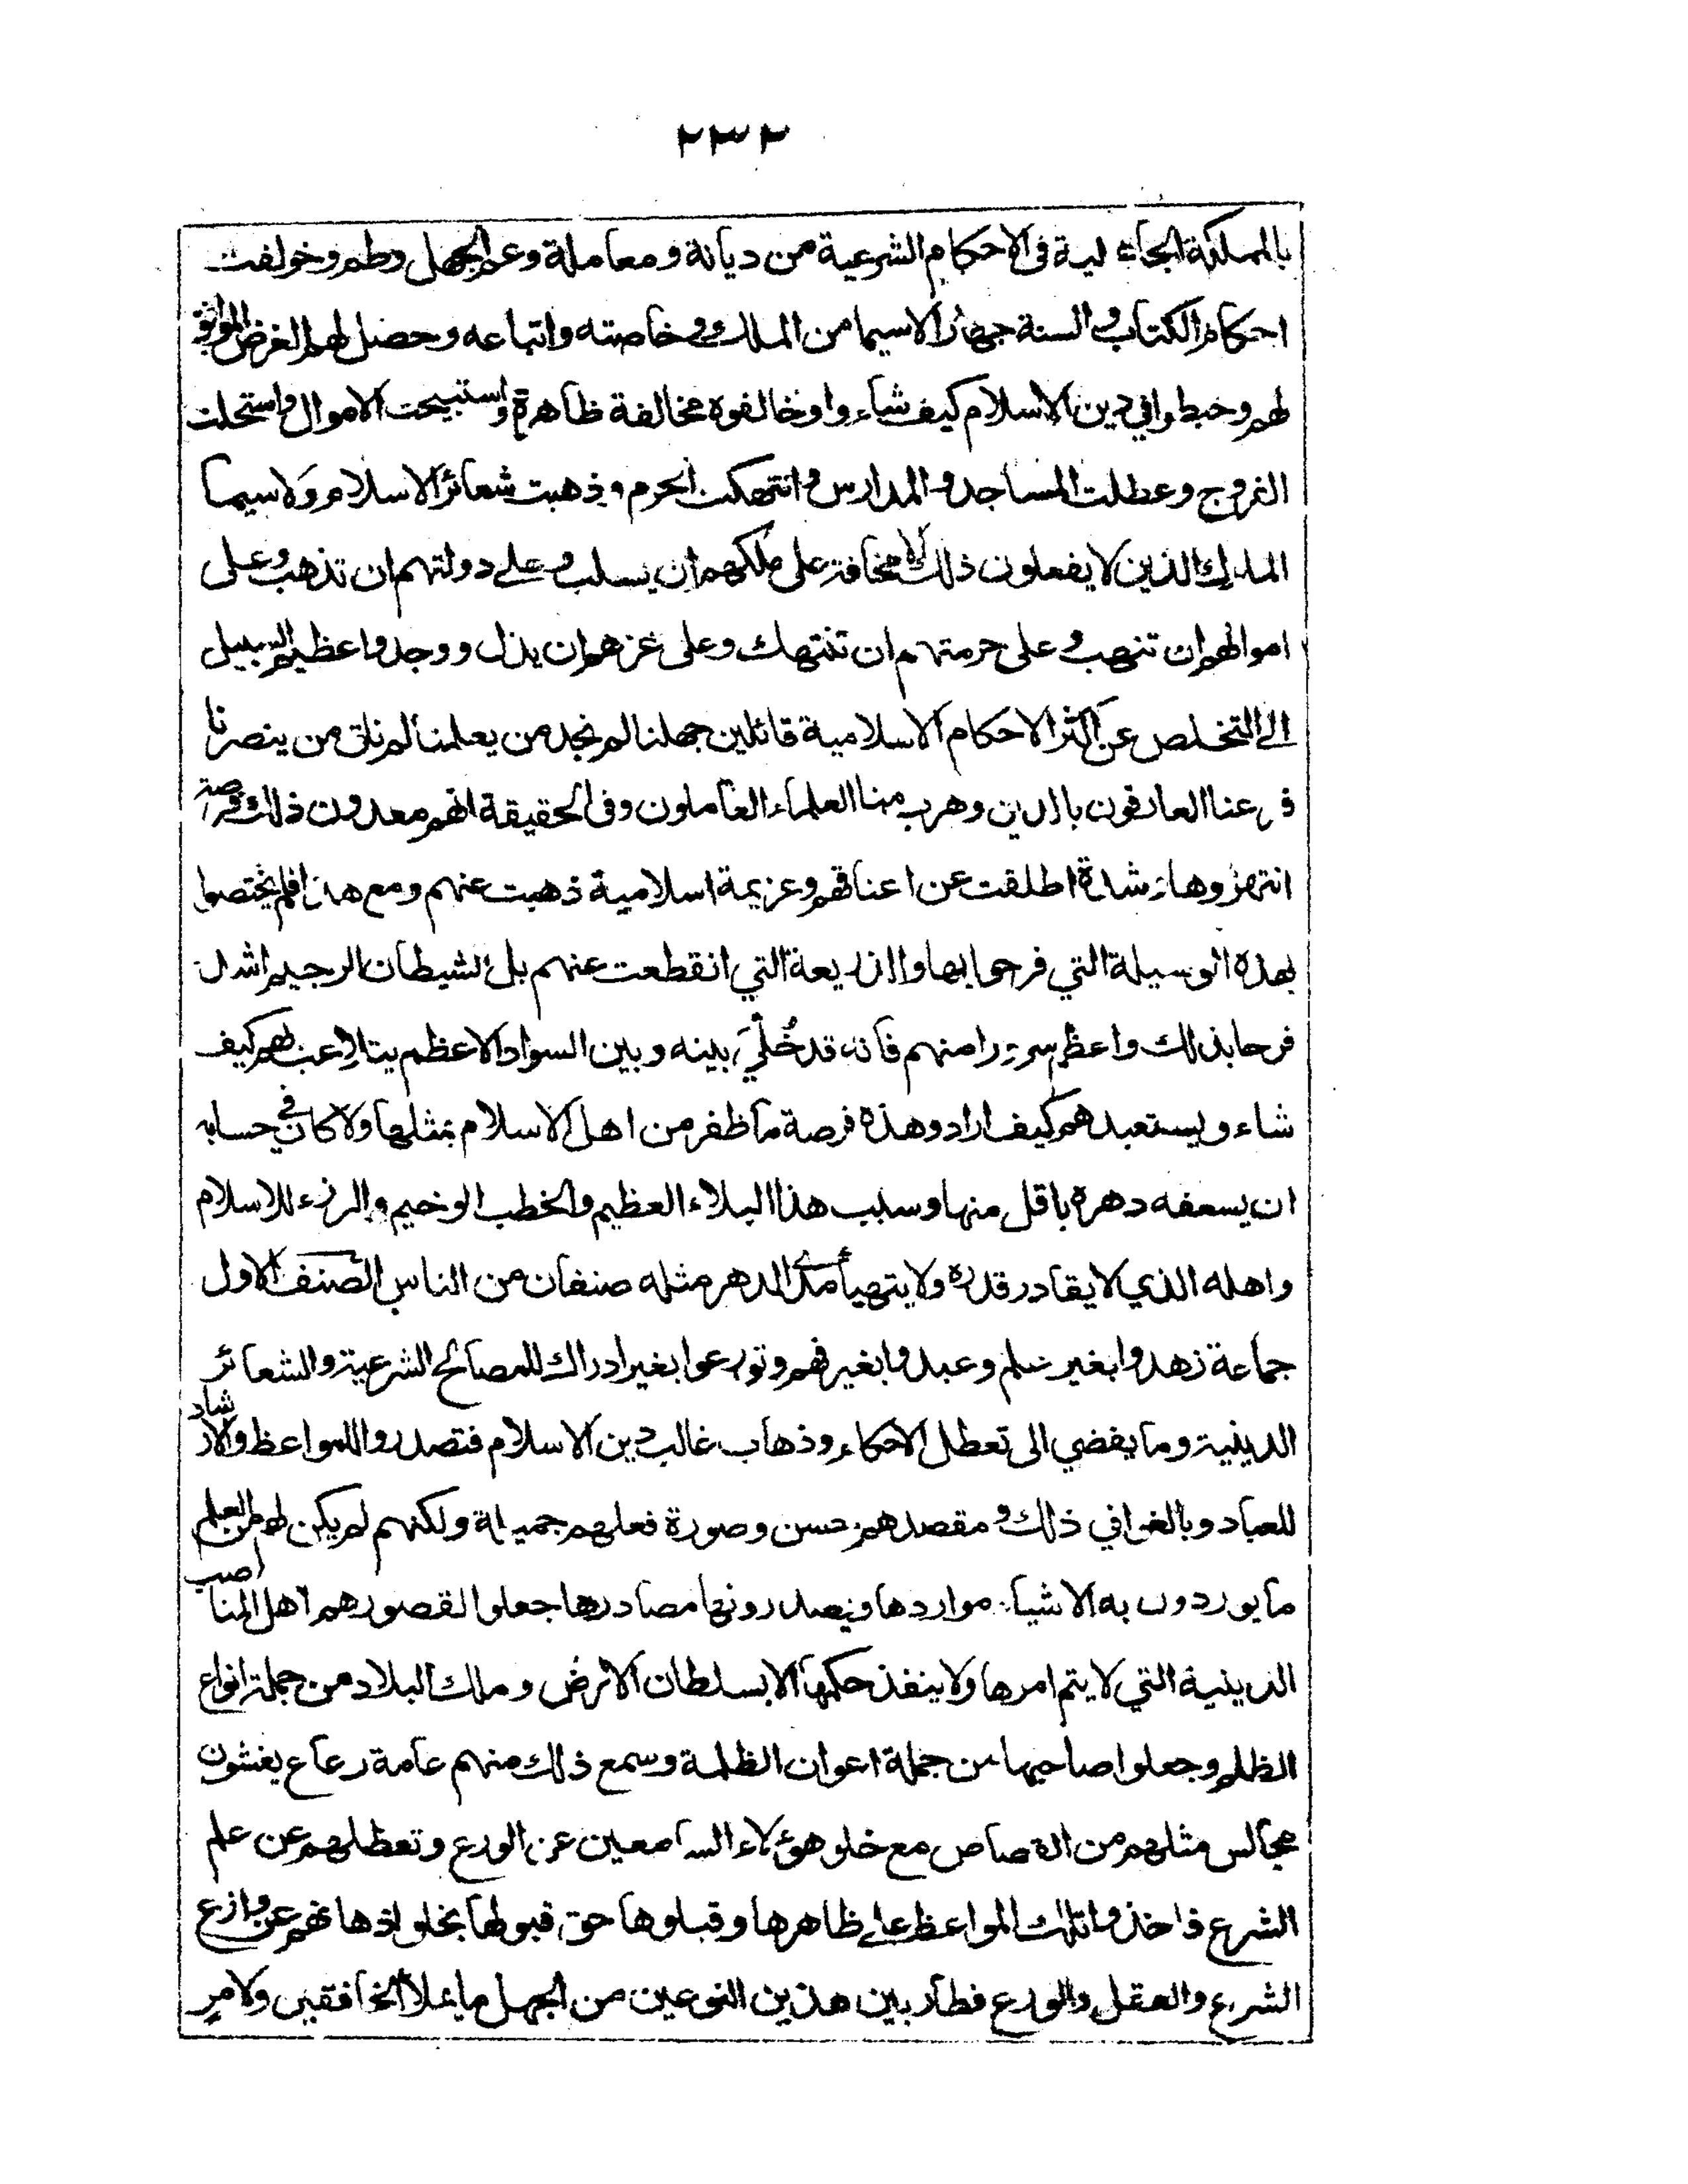 ٢٣٢
بالمسلكة الجاهلية في الاحكام الشرعية من ديانة ومعاملة وعم الجهل وطم وخولفت
احكام الكتاب والسنة جهارا لاسيما من الملوك وخاصته واتباعه وحصل لهم الغرض الموافق
لهم وخبطوا في دين الاسلام كيف شاءوا وخالفوه مخالفة ظاهرة واستبيحت الاموال واستحلت
الفروج وعطلت المساجد والمدارس وانتهكت الحرم وذهبت شعائر الاسلام ولاسيما
الملوك الذين لا يفعلون ذلك الا مخافة على ملكهم ان يسلب وعلى دولتهم ان تذهب وعلى
اموالهم ان تنهب وعلى حرمتهم ان تنتهك وعلى عزهم ان يذل ووجدوا عظيم السبيل
الى التخلص عن اكثر الاحكام الاسلامية قائلين جهلنا لم نجد من يعلمنا لم نلق من ينصرنا
فر عنا العارفون بالدين وهرب منا العلماء العاملون وفي الحقيقة انهم معدون ذلك فرصة
انتهزوها وشدة اطلقت عن اعناقهم وعزيمة اسلامية ذهبت عنهم ومع هذا فلم يختصوا
بهذه الوسيلة التي فرحوا بها والذريعة التي انقطعت عنهم بل الشيطان الرجيم اشد
فرحا بذلك واعظم سرورا منهم فانه قد خُلِّيَ بينه وبين السواد الاعظم يتلاعب بهم كيف
شاء ويستعبدهم كيف اراد وهذه فرصة ما ظفر من اهل الاسلام بمثلها ولا كان في حسابه
ان يسعفه دهره باقل منها وسبب هذا البلاء العظيم والخطب الوخيم والرزء للاسلام
واهله الذي لا يقادر قدره ولا يتهيأ مدى الدهر مثله صنفان من الناس الصنف الاول
جماعة زهدوا بغير علم وعبدوا بغير فهم وتورعوا بغير ادراك للمصالح الشرعية والشعائر
الدينية وما يفضي الى تعطل الاحكام وذهاب غالب دين الاسلام فتصدروا للمواعظ والارشاد
للعباد وبالغوا في ذلك ومقصدهم حسن وصورة فعلهم جميلة ولكنهم لم يكن لهم من العلم
ما يوردون به الاشياء مواردها ويصدرونها مصادرها جعلوا لقصورهم اهل المناصب
الدينية التي لا يتم امرها ولا ينفذ حكمها الا بسلطان الارض وملك البلاد من جملة انواع
الظلم وجعلوا صاحبها من جملة اعوان الظلمة وسمع ذلك منهم عامة رعاع يغشون
مجالس مثلهم من القصاص مع خلو هؤلاء السامعين عن الورع وتعطلهم عن علم
الشرع فاخذوا تلك المواعظ على ظاهرها وقبلوها حق قبولها بخلو اذهانهم عن وازع
الشرع والعقل والورع فطار بين هذين النوعين من الجهل ما يملأ الخافقين ولامر